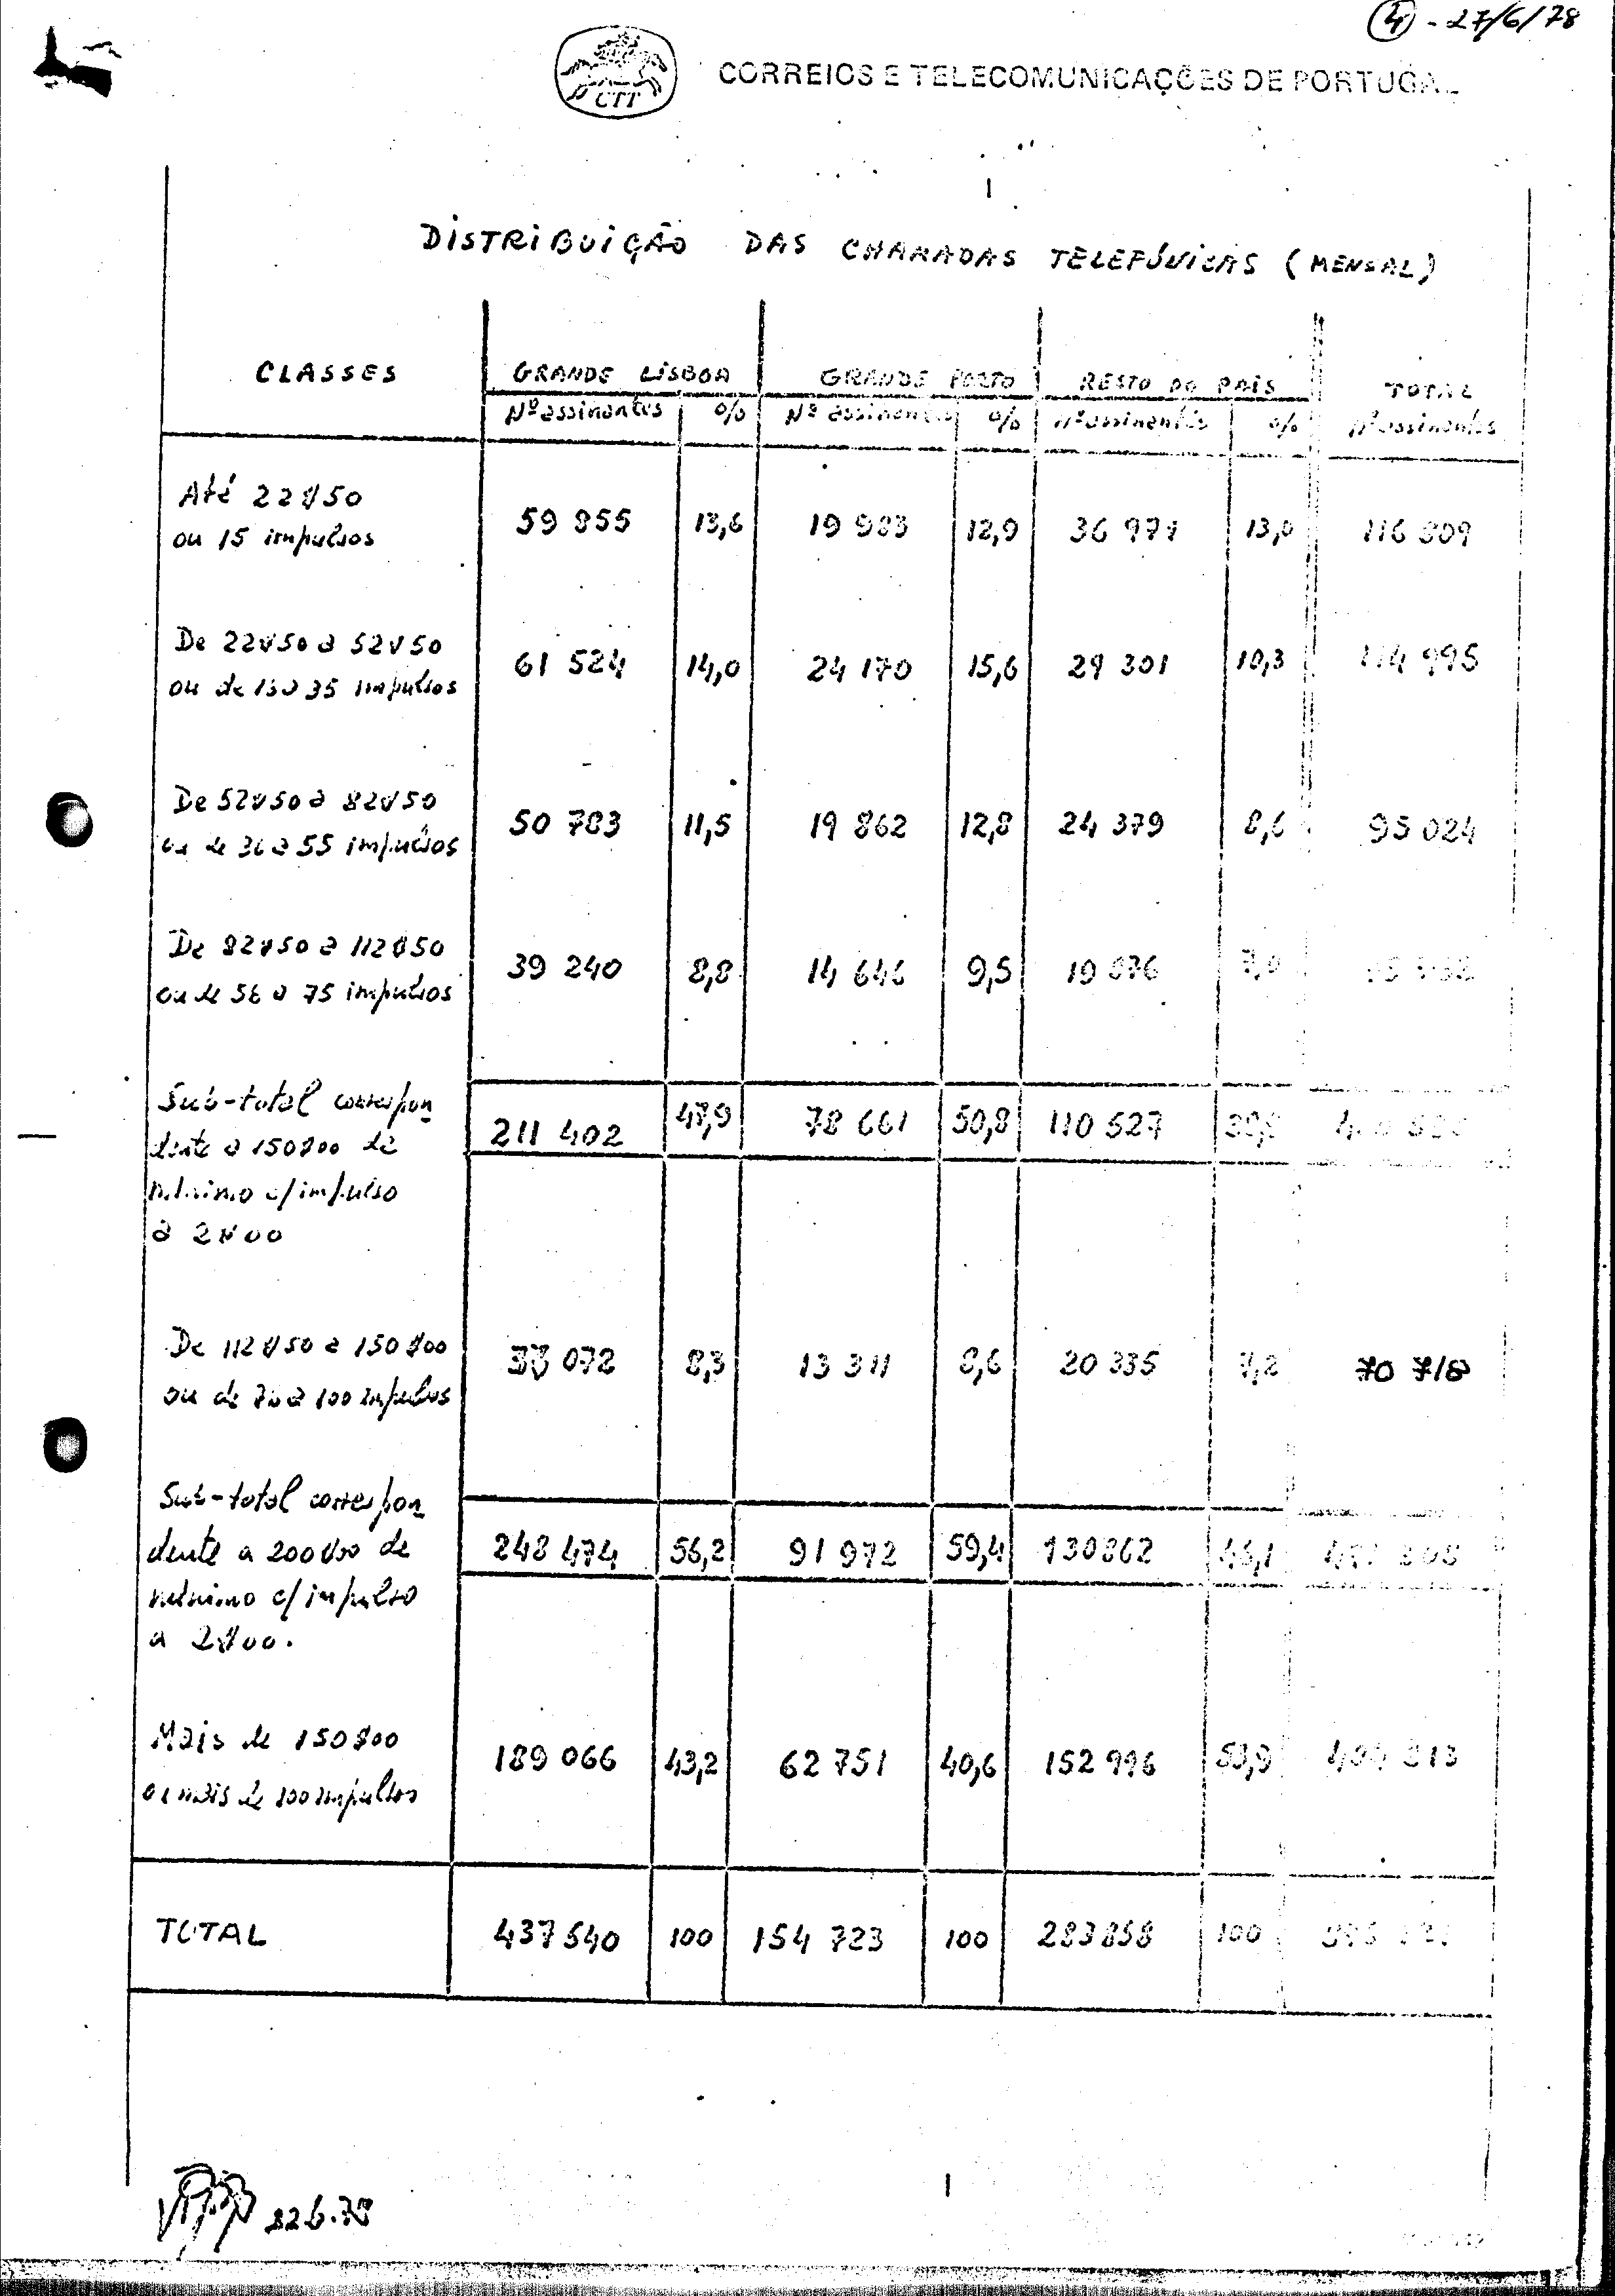 ④ - 27/6/78
CTT
CORREIOS E TELECOMUNICAÇÕES DE PORTUGAL
DISTRIBUIÇÃO DAS CHAMADAS TELEFÓNICAS (MENSAL)
CLASSES GRANDE LISBOA GRANDE PORTO RESTO DO PAÍS TOTAL
Nº assinantes % Nº assinantes % Nº assinantes % Nº assinantes
Até 22$50
ou 15 impulsos 59 855 13,6 19 983 12,9 36 971 13,0 116 809
De 22$50 a 52$50
ou de 15 a 35 impulsos 61 524 14,0 24 170 15,6 29 301 10,3 114 995
De 52$50 a 82$50
ou de 36 a 55 impulsos 50 783 11,5 19 862 12,8 24 379 8,6 95 024
De 82$50 a 112$50
ou de 56 a 75 impulsos 39 240 8,8 14 646 9,5 19 876 7,0
Sub-total correspon
dente a 150$00 de 211 402 47,9 78 661 50,8 110 527
mínimo c/ impulso
a 2$00
De 112$50 a 150$00
ou de 76 a 100 impulsos 072 8,3 13 311 8,6 20 335 7,2 70 718
Sub-total correspon
dente a 200$00 de 248 474 56,2 91 972 59,4 130862 46,1
mínimo c/ impulso
a 2$00.
Mais de 150$00
ou mais de 100 impulsos 189 066 43,2 62 751 40,6 152 996 53,9
TOTAL 437540 100 154 723 100 283858 100
22.6.78